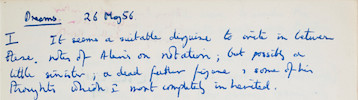 Dreams. 26 May 56
I It seems a suitable disguise to write in between
these notes of Alan's on notation; but possibly a
little sinister; a dead father figure & some of his
thoughts which I most completely inherited.